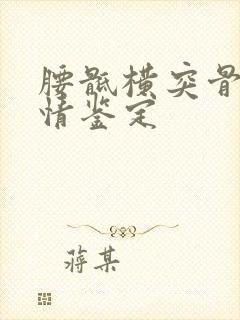 腰骶横突骨
情鉴定
蒋某